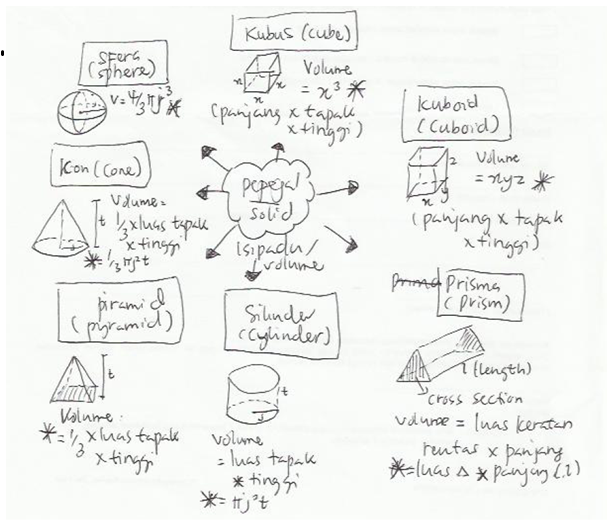 Kubus (cube)
x
x
x
Volume
= x³ *
(panjang x tapak
x tinggi)
sfera
(sphere)
V = 4/3 πj³ *
Kuboid
(Cuboid)
z
x
y
Volume
= xyz *
(panjang x tapak
x tinggi)
Kon (Cone)
t
j
Volume =
1/3 x luas tapak
x tinggi
* = 1/3 πj²t
pepejal
solid
Isipadu /
Volume
piramid
(pyramid)
t
Volume :
* = 1/3 x luas tapak
x tinggi
Silinder
(Cylinder)
t
j
volume
= luas tapak
* tinggi
* = πj²t
Prisma
(Prism)
l (length)
cross section
volume = luas keratan
rentas x panjang
* = luas Δ * panjang (l)